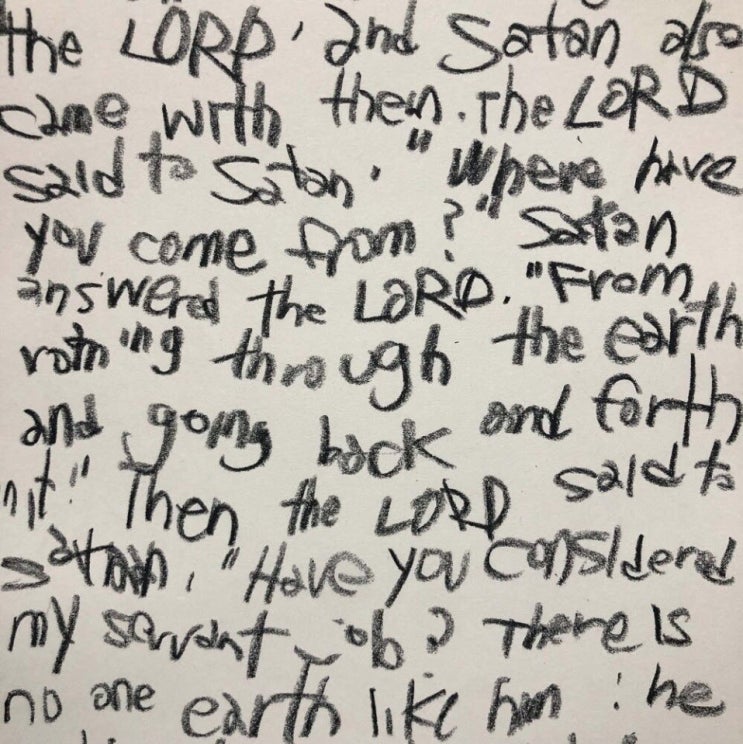 the LORD, and Satan also
came with them. The LORD
said to Satan, "Where have
you come from?" Satan
answered the LORD, "From
roaming through the earth
and going back and forth
in it." Then the LORD said to
Satan, "Have you considered
my servant Job? There is
no one earth like him; he